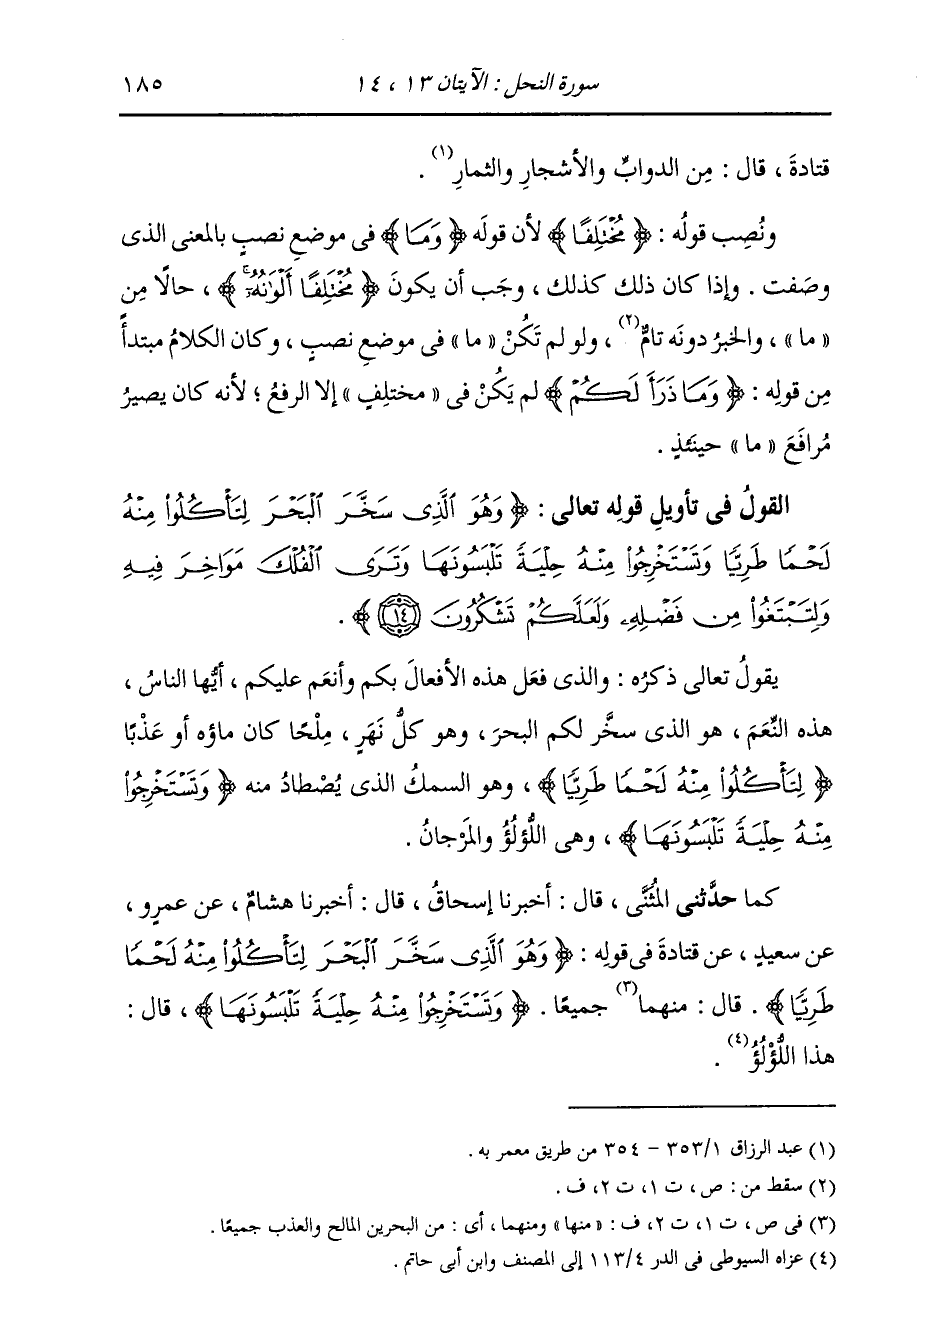 سورة النحل : الآيتان ١٣ ، ١٤ ١٨٥
قتادةَ ، قال : مِن الدوابِّ والأشجارِ والثمارِ(١) .
ونُصِب قولُه : ﴿ مُخْتَلِفًا ﴾ لأن قولَه ﴿ وَمَا ﴾ فى موضعِ نصبٍ بالمعنى الذى
وصَفت . وإذا كان ذلك كذلك ، وجَب أن يكونَ ﴿ مُخْتَلِفًا أَلْوَٰنُهُۥٓ ﴾ ، حالًا مِن
« ما » ، والخبرُ دونَه تامٌّ(٢) ، ولو لم تَكُنْ « ما » فى موضعِ نصبٍ ، وكان الكلامُ مبتدأً
مِن قولِه : ﴿ وَمَا ذَرَأَ لَكُمْ ﴾ لم يَكُنْ فى « مختلِفٍ » إلا الرفعُ ؛ لأنه كان يصيرُ
مُرافَعَ « ما » حينَئذٍ .
القولُ فى تأويلِ قولِه تعالى : ﴿ وَهُوَ ٱلَّذِى سَخَّرَ ٱلْبَحْرَ لِتَأْكُلُوا۟ مِنْهُ
لَحْمًا طَرِيًّا وَتَسْتَخْرِجُوا۟ مِنْهُ حِلْيَةً تَلْبَسُونَهَا وَتَرَى ٱلْفُلْكَ مَوَاخِرَ فِيهِ
وَلِتَبْتَغُوا۟ مِن فَضْلِهِۦ وَلَعَلَّكُمْ تَشْكُرُونَ ١٤ ﴾ .
يقولُ تعالى ذكرُه : والذى فعَل هذه الأفعالَ بكم وأنعَم عليكم ، أيُّها الناسُ ،
هذه النِّعَمَ ، هو الذى سخَّر لكم البحرَ ، وهو كلُّ نَهَرٍ ، مِلْحًا كان ماؤه أو عَذْبًا
﴿ لِتَأْكُلُوا۟ مِنْهُ لَحْمًا طَرِيًّا ﴾ ، وهو السمكُ الذى يُصْطادُ منه ﴿ وَتَسْتَخْرِجُوا۟
مِنْهُ حِلْيَةً تَلْبَسُونَهَا ﴾ ، وهى اللُّؤلُؤُ والمَرْجانُ .
كما حدَّثنى المُثَنَّى ، قال : أخبرنا إسحاقُ ، قال : أخبرنا هشامٌ ، عن عمرٍو ،
عن سعيدٍ ، عن قتادةَ فى قولِه : ﴿ وَهُوَ ٱلَّذِى سَخَّرَ ٱلْبَحْرَ لِتَأْكُلُوا۟ مِنْهُ لَحْمًا
طَرِيًّا ﴾ . قال : منهما(٣) جميعًا . ﴿ وَتَسْتَخْرِجُوا۟ مِنْهُ حِلْيَةً تَلْبَسُونَهَا ﴾ ، قال :
هذا اللُّؤْلُؤُ(٤) .
(١) عبد الرزاق ٣٥٣/١ - ٣٥٤ من طريق معمر به .
(٢) سقط من : ص ، ت ١ ، ت ٢ ، ف .
(٣) فى ص ، ت ١ ، ت ٢ ، ف : « منها » ومنهما ، أى : من البحرين المالح والعذب جميعًا .
(٤) عزاه السيوطى فى الدر ١١٣/٤ إلى المصنف وابن أبى حاتم .